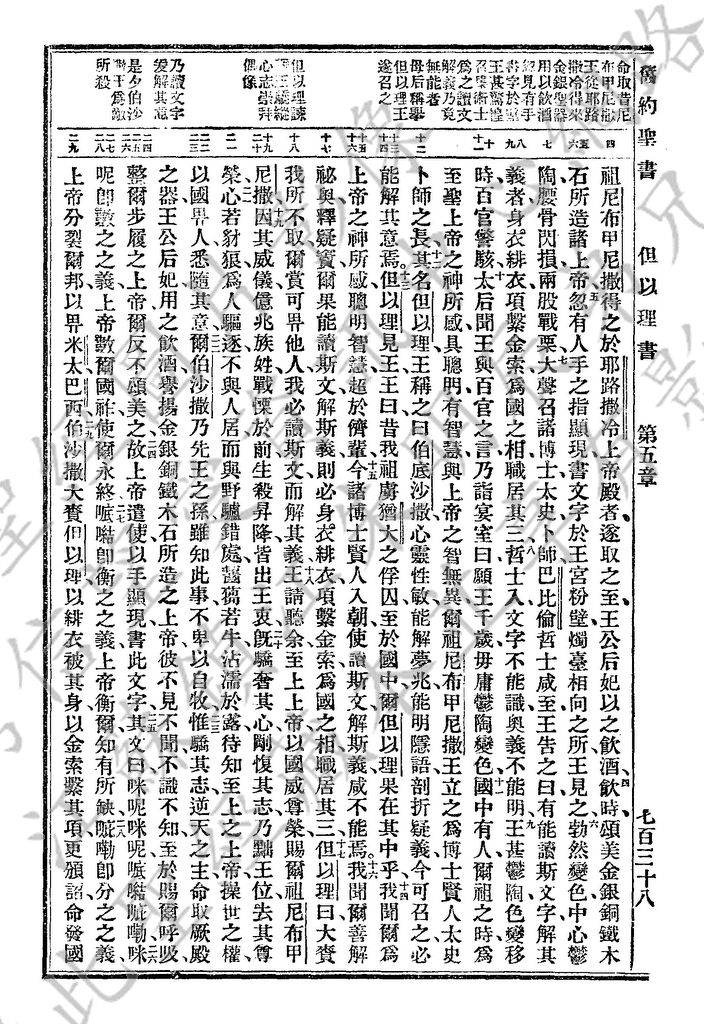 舊約聖書 但以理書 第五章 七百三十八
命取昔尼
布甲尼撒
王從耶路
撒冷得來
金銀聖器
用以飲酒
忽見有手
書字於壁
王甚驚惶
召集術士
為之讀文
解義乃竟
無能者
母后稱舉
但以理王
遂召之
但以理諫
王王驕縱
心志崇拜
偶像
乃讀文字
爰解其意
是夕伯沙
撒王為敵
所殺
四 祖尼布甲尼撒得之於耶路撒冷上帝殿者遂取之至王公后妃以之飲酒飲時頌美金銀銅鐵木
五 六 石所造諸上帝忽有人手之指顯現書文字於王宮粉壁燭臺相向之所王見之勃然變色中心鬱
七 陶腰骨閃損兩股戰栗大聲召諸博士太史卜師巴比倫哲士咸至王告之曰有能讀斯文字解其
八 九 義者身衣緋衣項繫金索為國之相職居其三哲士入文字不能識奧義不能明王甚鬱陶色變移
十 十一 時百官警駭太后聞王與百官之言乃詣宴室曰願王千歲毋庸鬱陶變色國中有人爾祖之時為
至聖上帝之神所感具聰明有智慧與上帝之智無異爾祖尼布甲尼撒王立之為博士賢人太史
十二 卜師之長其名但以理王稱之曰伯底沙撒心靈性敏能解夢兆能明隱語剖折疑義今可召之必
十三 十四 能解其意焉但以理見王王曰昔我祖虜猶大之俘囚至於國中爾但以理果在其中乎我聞爾為
十五 十六 上帝之神所感聰明智慧超於儕輩今諸博士賢人入朝使讀斯文解斯義咸不能焉我聞爾善解
十七 祕奧釋疑竇爾果能讀斯文解斯義則必身衣緋衣項繫金索為國之相職居其三但以理曰大賚
十八 我所不取爾賞可畀他人我必讀斯文而解其義王請聽余至上上帝以國威尊榮賜爾祖尼布甲
十九 二十 尼撒因其威儀億兆族姓戰慄於前生殺昇降皆出王衷旣驕奢其心剛愎其志乃黜王位去其尊
二一 榮心若豺狼為人驅逐不與人居而與野驢錯處齧蒭若牛沾濡於露待知至上之上帝操世之權
二二 二三 以國畀人悉隨其意爾伯沙撒乃先王之孫雖知此事不卑以自牧惟驕其志逆天之主命取厥殿
之器王公后妃用之飲酒譽揚金銀銅鐵木石所造之上帝彼不見不聞不識不知至於賜爾呼吸
二四 二五 二六 整爾步履之上帝爾反不頌美之故上帝遣使以手顯現書此文字其文曰咪呢咪呢嚥𠸄嚥嘞咪
二七 二八 呢卽數之之義上帝數爾國祚使爾永終嚥𠸄卽衡之之義上帝衡爾知有所缺嚥嘞卽分之之義
二九 上帝分裂爾邦以畀米太巴西伯沙撒大賚但以理以緋衣被其身以金索繫其項更頒詔命發國